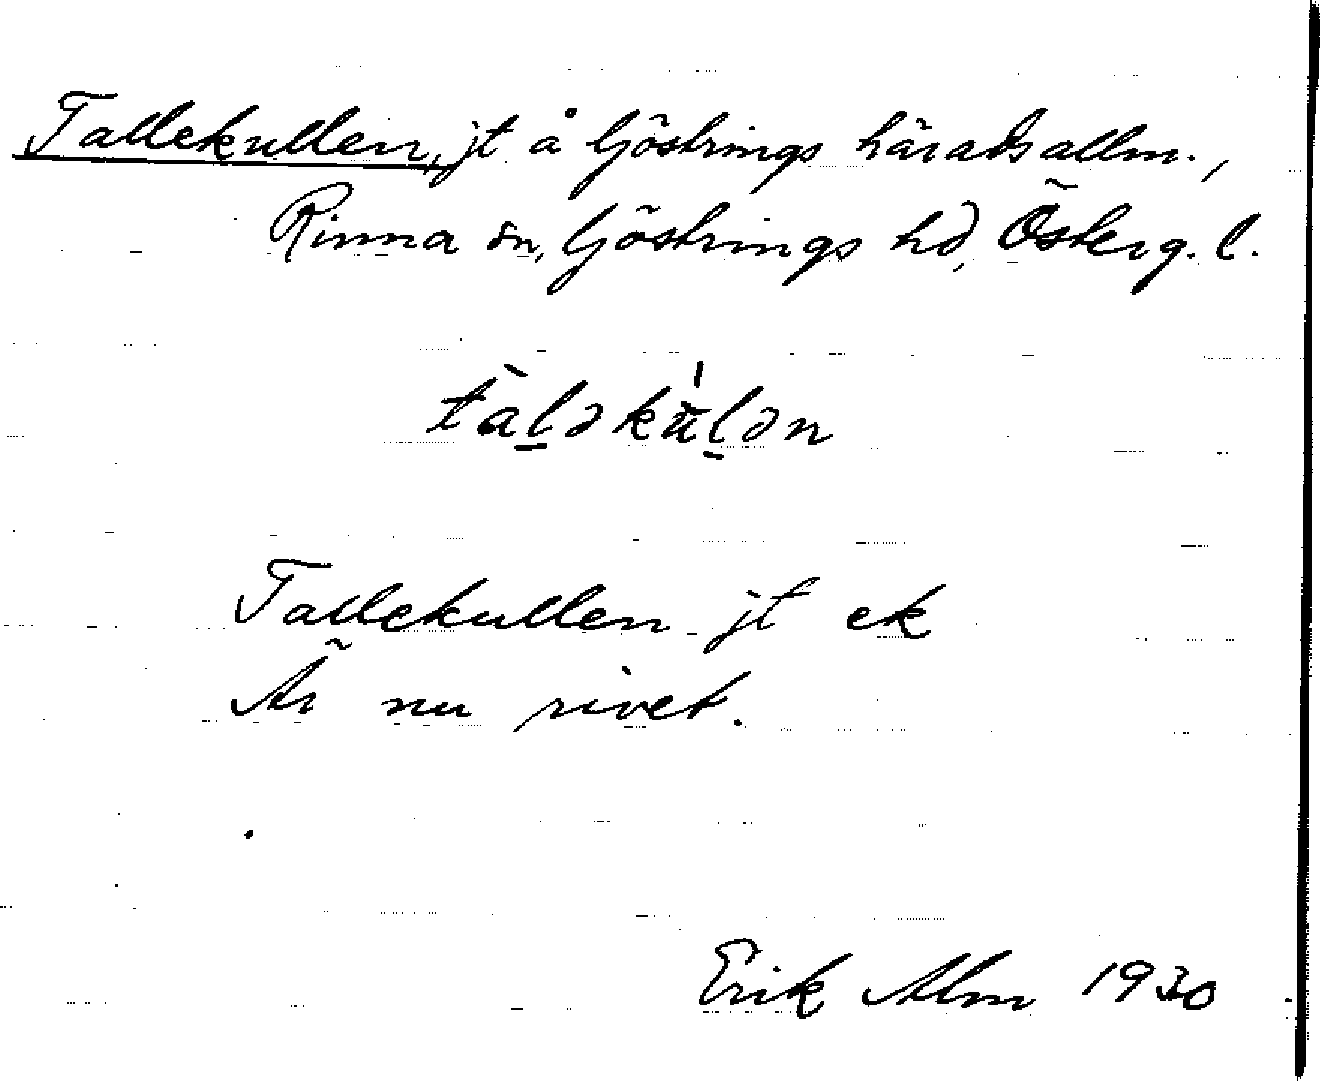 Tallekullen, jt å Göstrings häradsallm.,
Rinna sn, Göstrings hd, Österg. l.
tàḻəkù̍ḻən
Tallekullen jt ek
Är nu rivet.
Erik Alm 1930